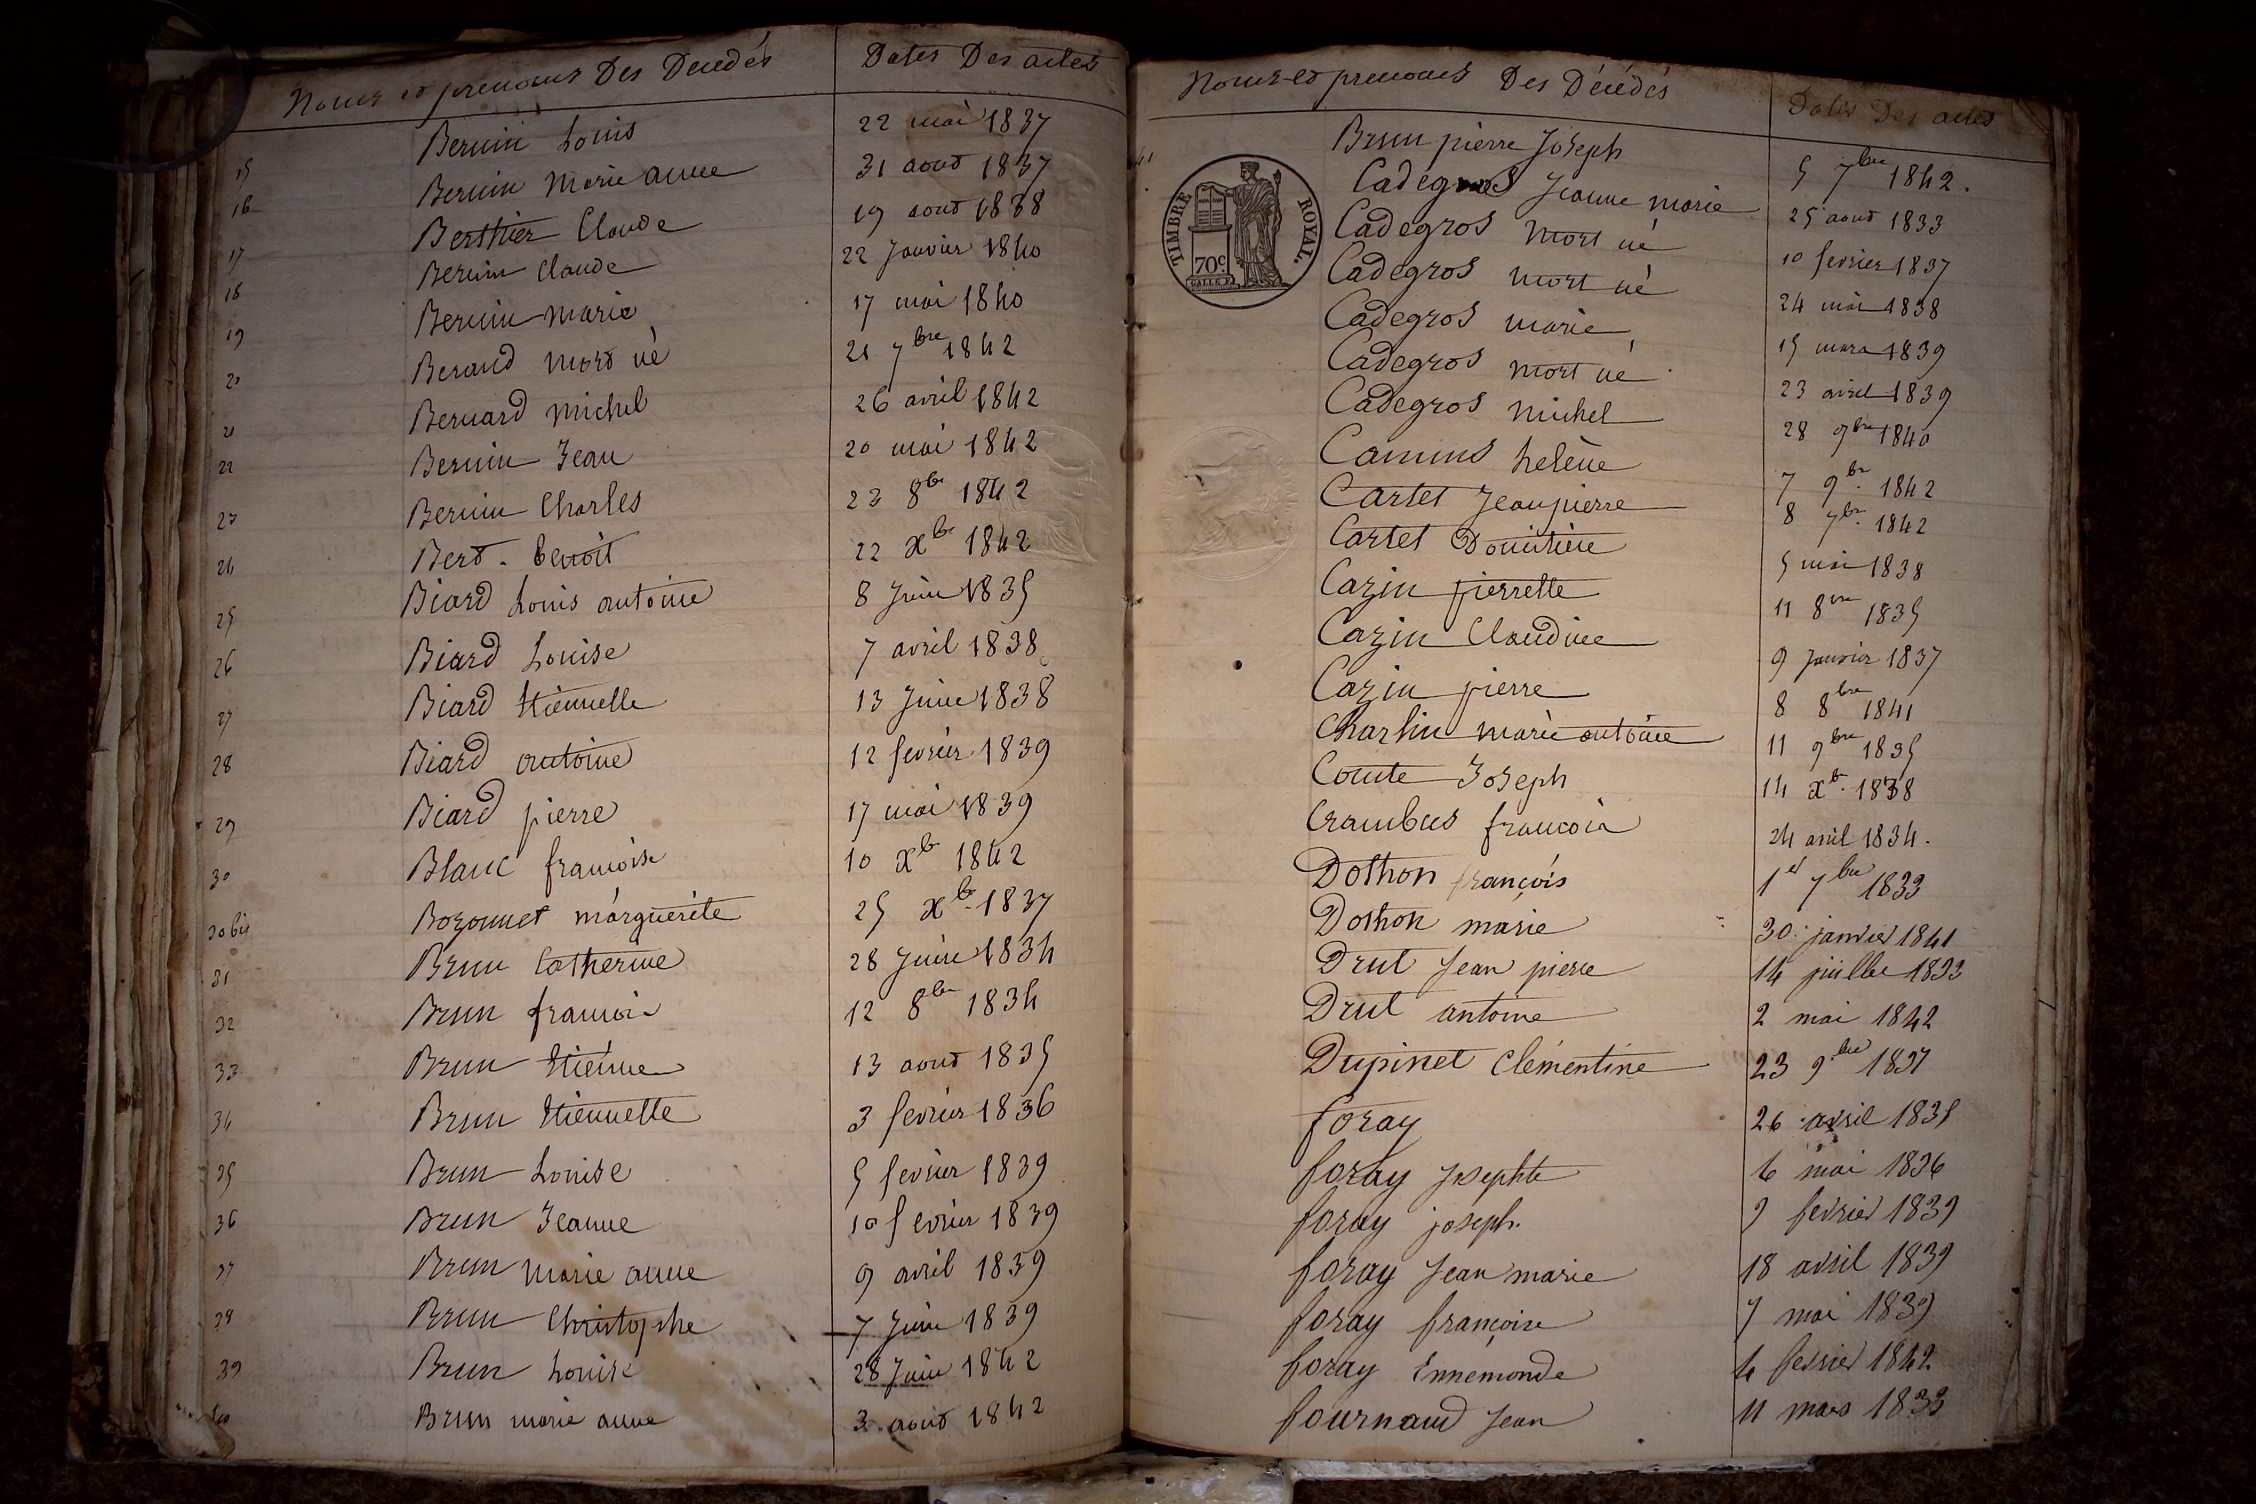 Noms et prenoms Des Decedés Dates Des actes
15 Bernin Louis 22 mai 1837
16 Bernin Marie anne 31 aout 1837
17 Berthier Claude 19 aout 1838
18 Bernin Claude 22 Janvier 1840
19 Bernin Marie 17 mai 1840
20 Beraud Mort né 21 7bre 1842
21 Bernard Michel 26 avril 1842
22 Bernin Jean 20 mai 1842
23 Bernin Charles 23 8bre 1842
24 Bert. Benoit 22 xbre 1842
25 Biard Louis antoine 8 Juin 1835
26 Biard Louise 7 avril 1838
27 Biard Etiennette 13 Juin 1838
28 Biard antoine 12 fevrier 1839
29 Biard pierre 17 mai 1839
30 Blanc francoise 10 xbre 1842
30 bis Bozonnet marguerite 25 xbre 1837
31 Brun Catherine 28 Juin 1834
32 Brun francois 12 8bre 1834
33 Brun Etienne 13 aout 1835
34 Brun Etiennette 3 fevrier 1836
35 Brun Louise 5 fevrier 1839
36 Brun Jeanne 10 fevrier 1839
37 Brun Marie anne 9 avril 1839
38 Brun Christophe 7 Juin 1839
39 Brun Louise 28 Juin 1842
40 Brun marie anne 3 aout 1842
Noms et prenoms Des Décédés Dates Des actes
41 Brun pierre Joseph 5 7bre 1842.
Cadegros Jeanne Marie 25 aout 1833
Cadegros Mort né 10 fevrier 1837
Cadegros Mort né 24 mai 1838
Cadegros Marie 15 mars 1839
Cadegros Mort né 23 avril 1839
Cadegros Michel 28 9bre 1840
Camus helène 7 9bre 1842
Cartet Jean pierre 8 7bre 1842
Cartet 5 mai 1838
Cazin pierrette 11 8bre 1835
Cazin Claudine 9 Janvier 1837
Cazin pierre 8 8bre 1841
Charlin Marie antoine 11 9bre 1835
Comte Joseph 14 xbre 1838
Crambus francois 24 avril 1834.
Dothon françois 1er 7bre 1833
Dothon marie 30 janvier 1841
Drut Jean pierre 14 juillet 1833
Drut antoine 2 mai 1842
Dupinet Clémentine 23 9bre 1837
foray 26 avril 1835
foray Josephte 6 mai 1836
foray joseph. 9 fevrier 1839
foray Jean marie 18 avril 1839
foray françoise 7 mai 1839
foray Ennemonde 4 fevrier 1842
fournaud Jean 11 mars 1833
TIMBRE ROYAL.
70c